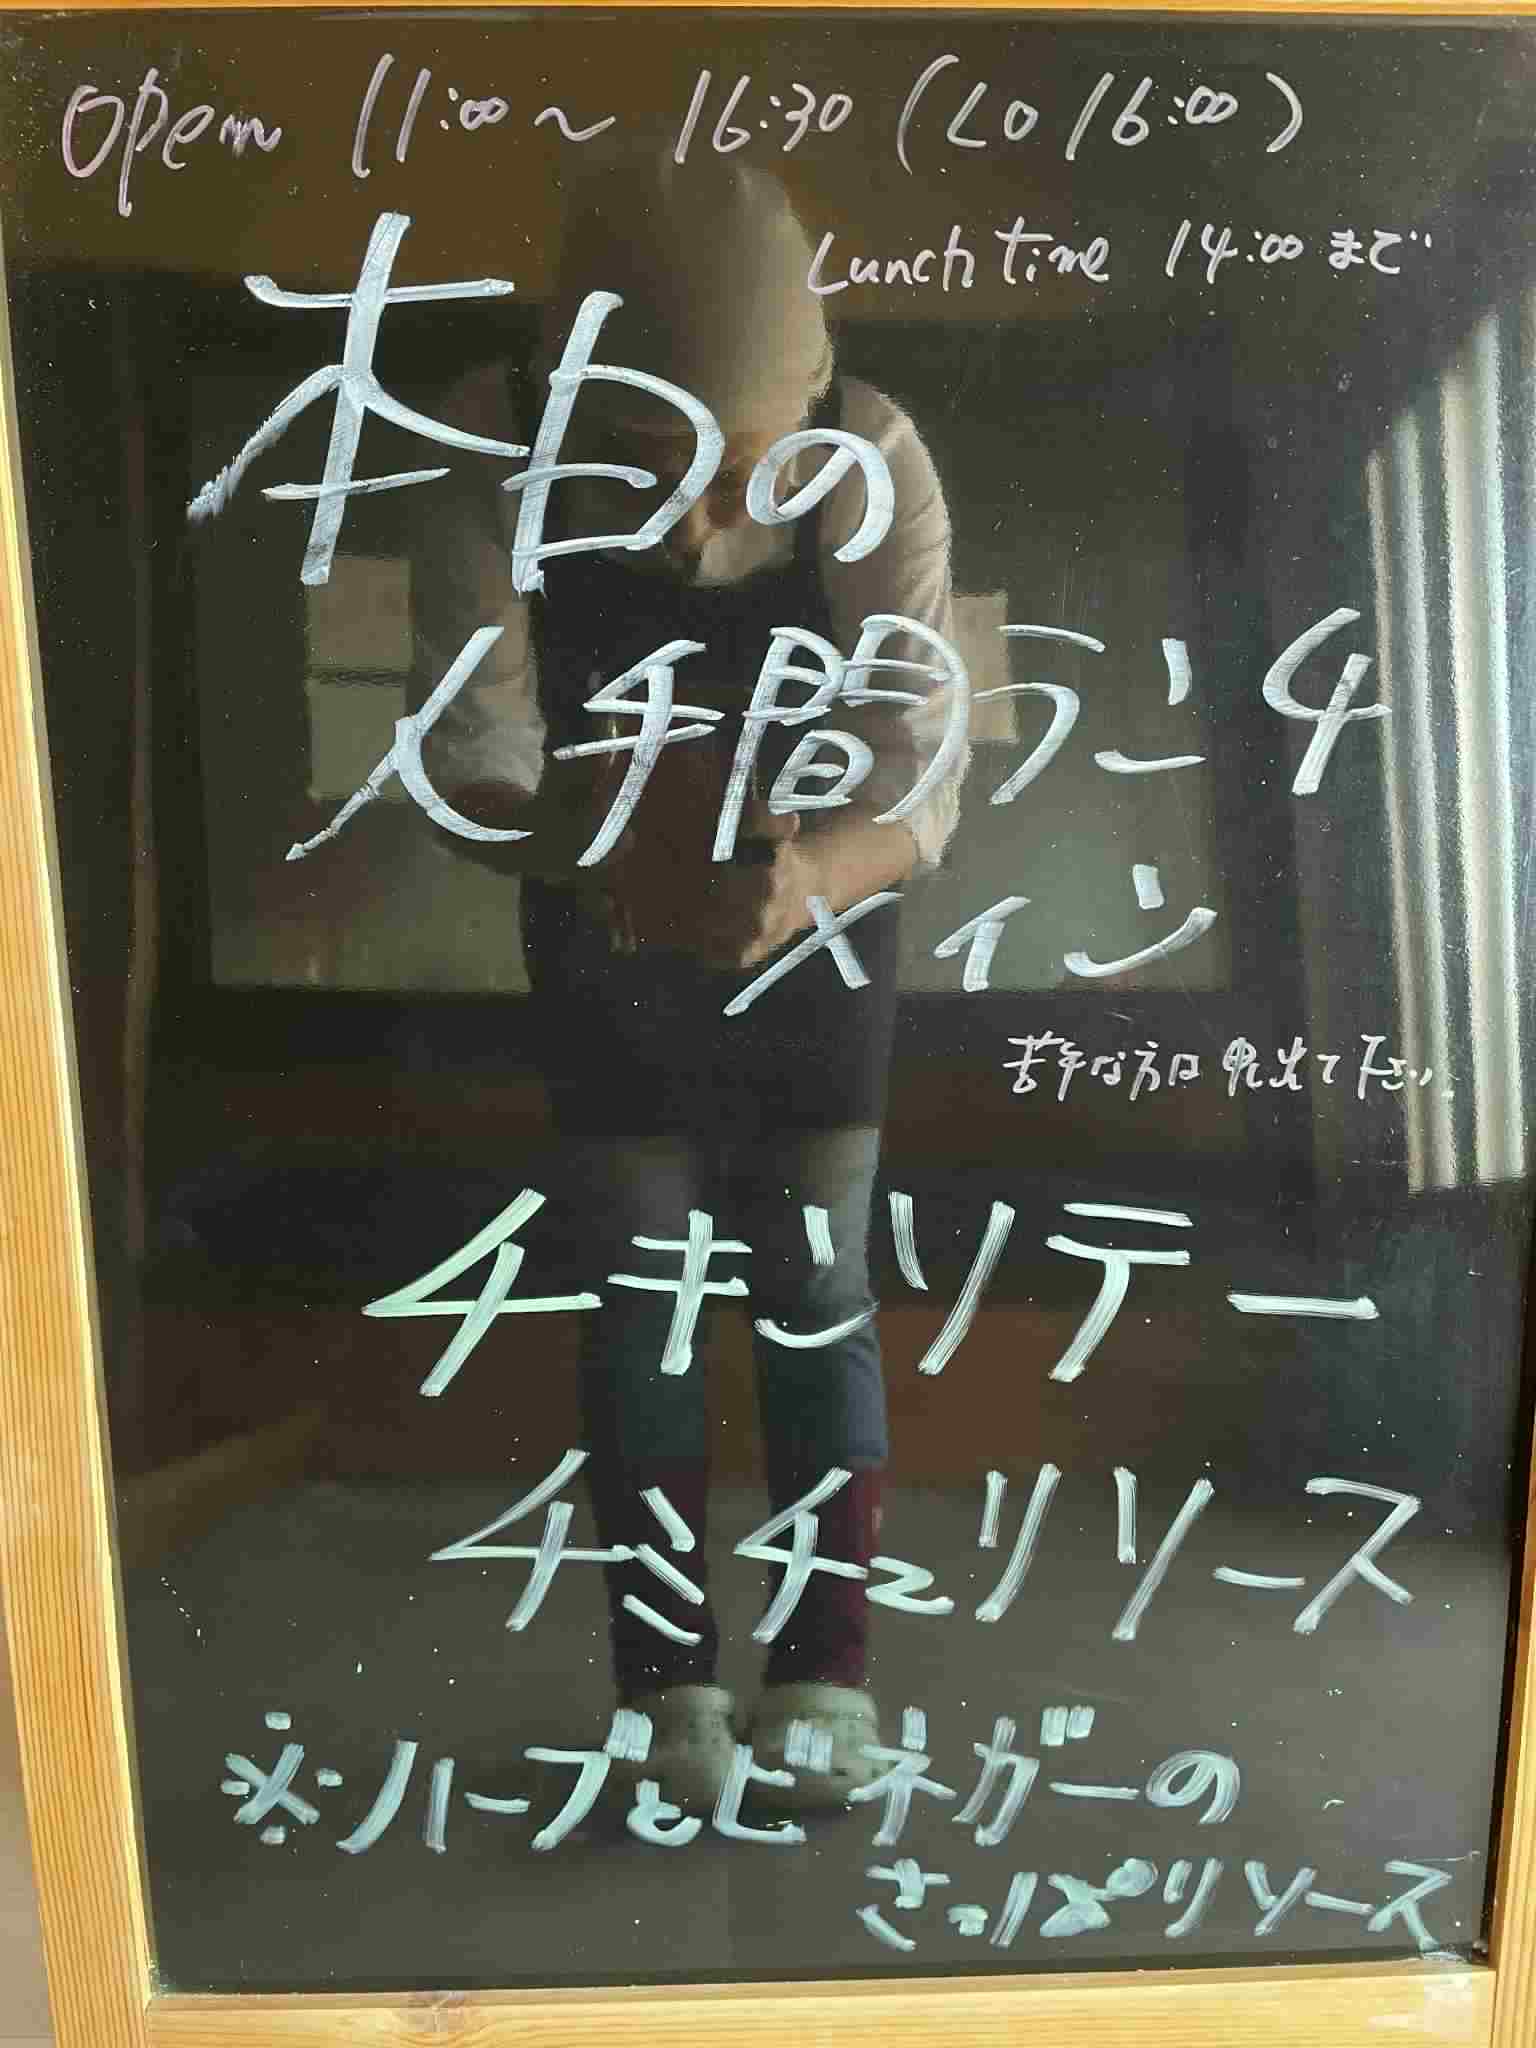 open 11:00～16:30(LO 16:00)
Lunch time 14:00まで
本日の
人手間ランチ
メイン
苦手な方は申出て下さい
チキンソテー
チミチュリソース
※ハーブとビネガーの
さっぱりソース